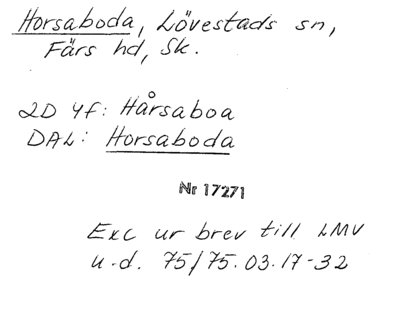 Horsaboda, Lövestads sn,
Färs hd, Sk.
2D 4f: Hårsaboa
DAL: Horsaboda
Nr 17271
Exc ur brev till LMV
u.d. 75/75.03.17-32